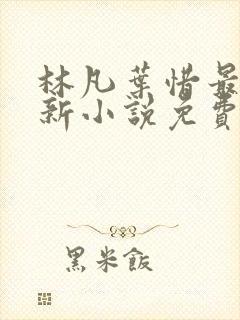 林凡葉惜最
新小說免費
黑米飯